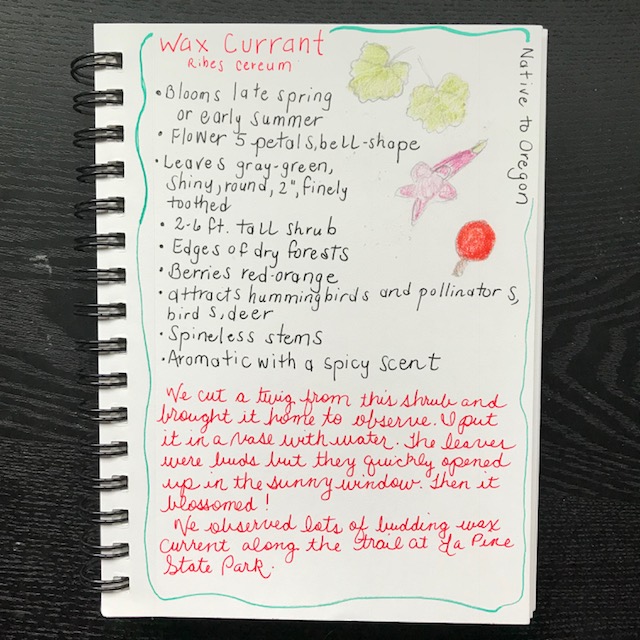 Wax Currant
Ribes cereum
Native to Oregon
• Blooms late spring
or early summer
• Flower 5-petals, bell-shape
• Leaves gray-green,
shiny, round, 2", finely
toothed
• 2-6 ft. tall shrub
• Edges of dry forests
• Berries red-orange
• attracts hummingbirds and pollinators,
birds, deer
• Spineless stems
• Aromatic with a spicy scent
We cut a twig from this shrub and
brought it home to observe. I put
it in a vase with water. The leaves
were buds but they quickly opened
up in the sunny window. Then it
blossomed!
We observed lots of budding wax
current along the trail at La Pine
State Park.